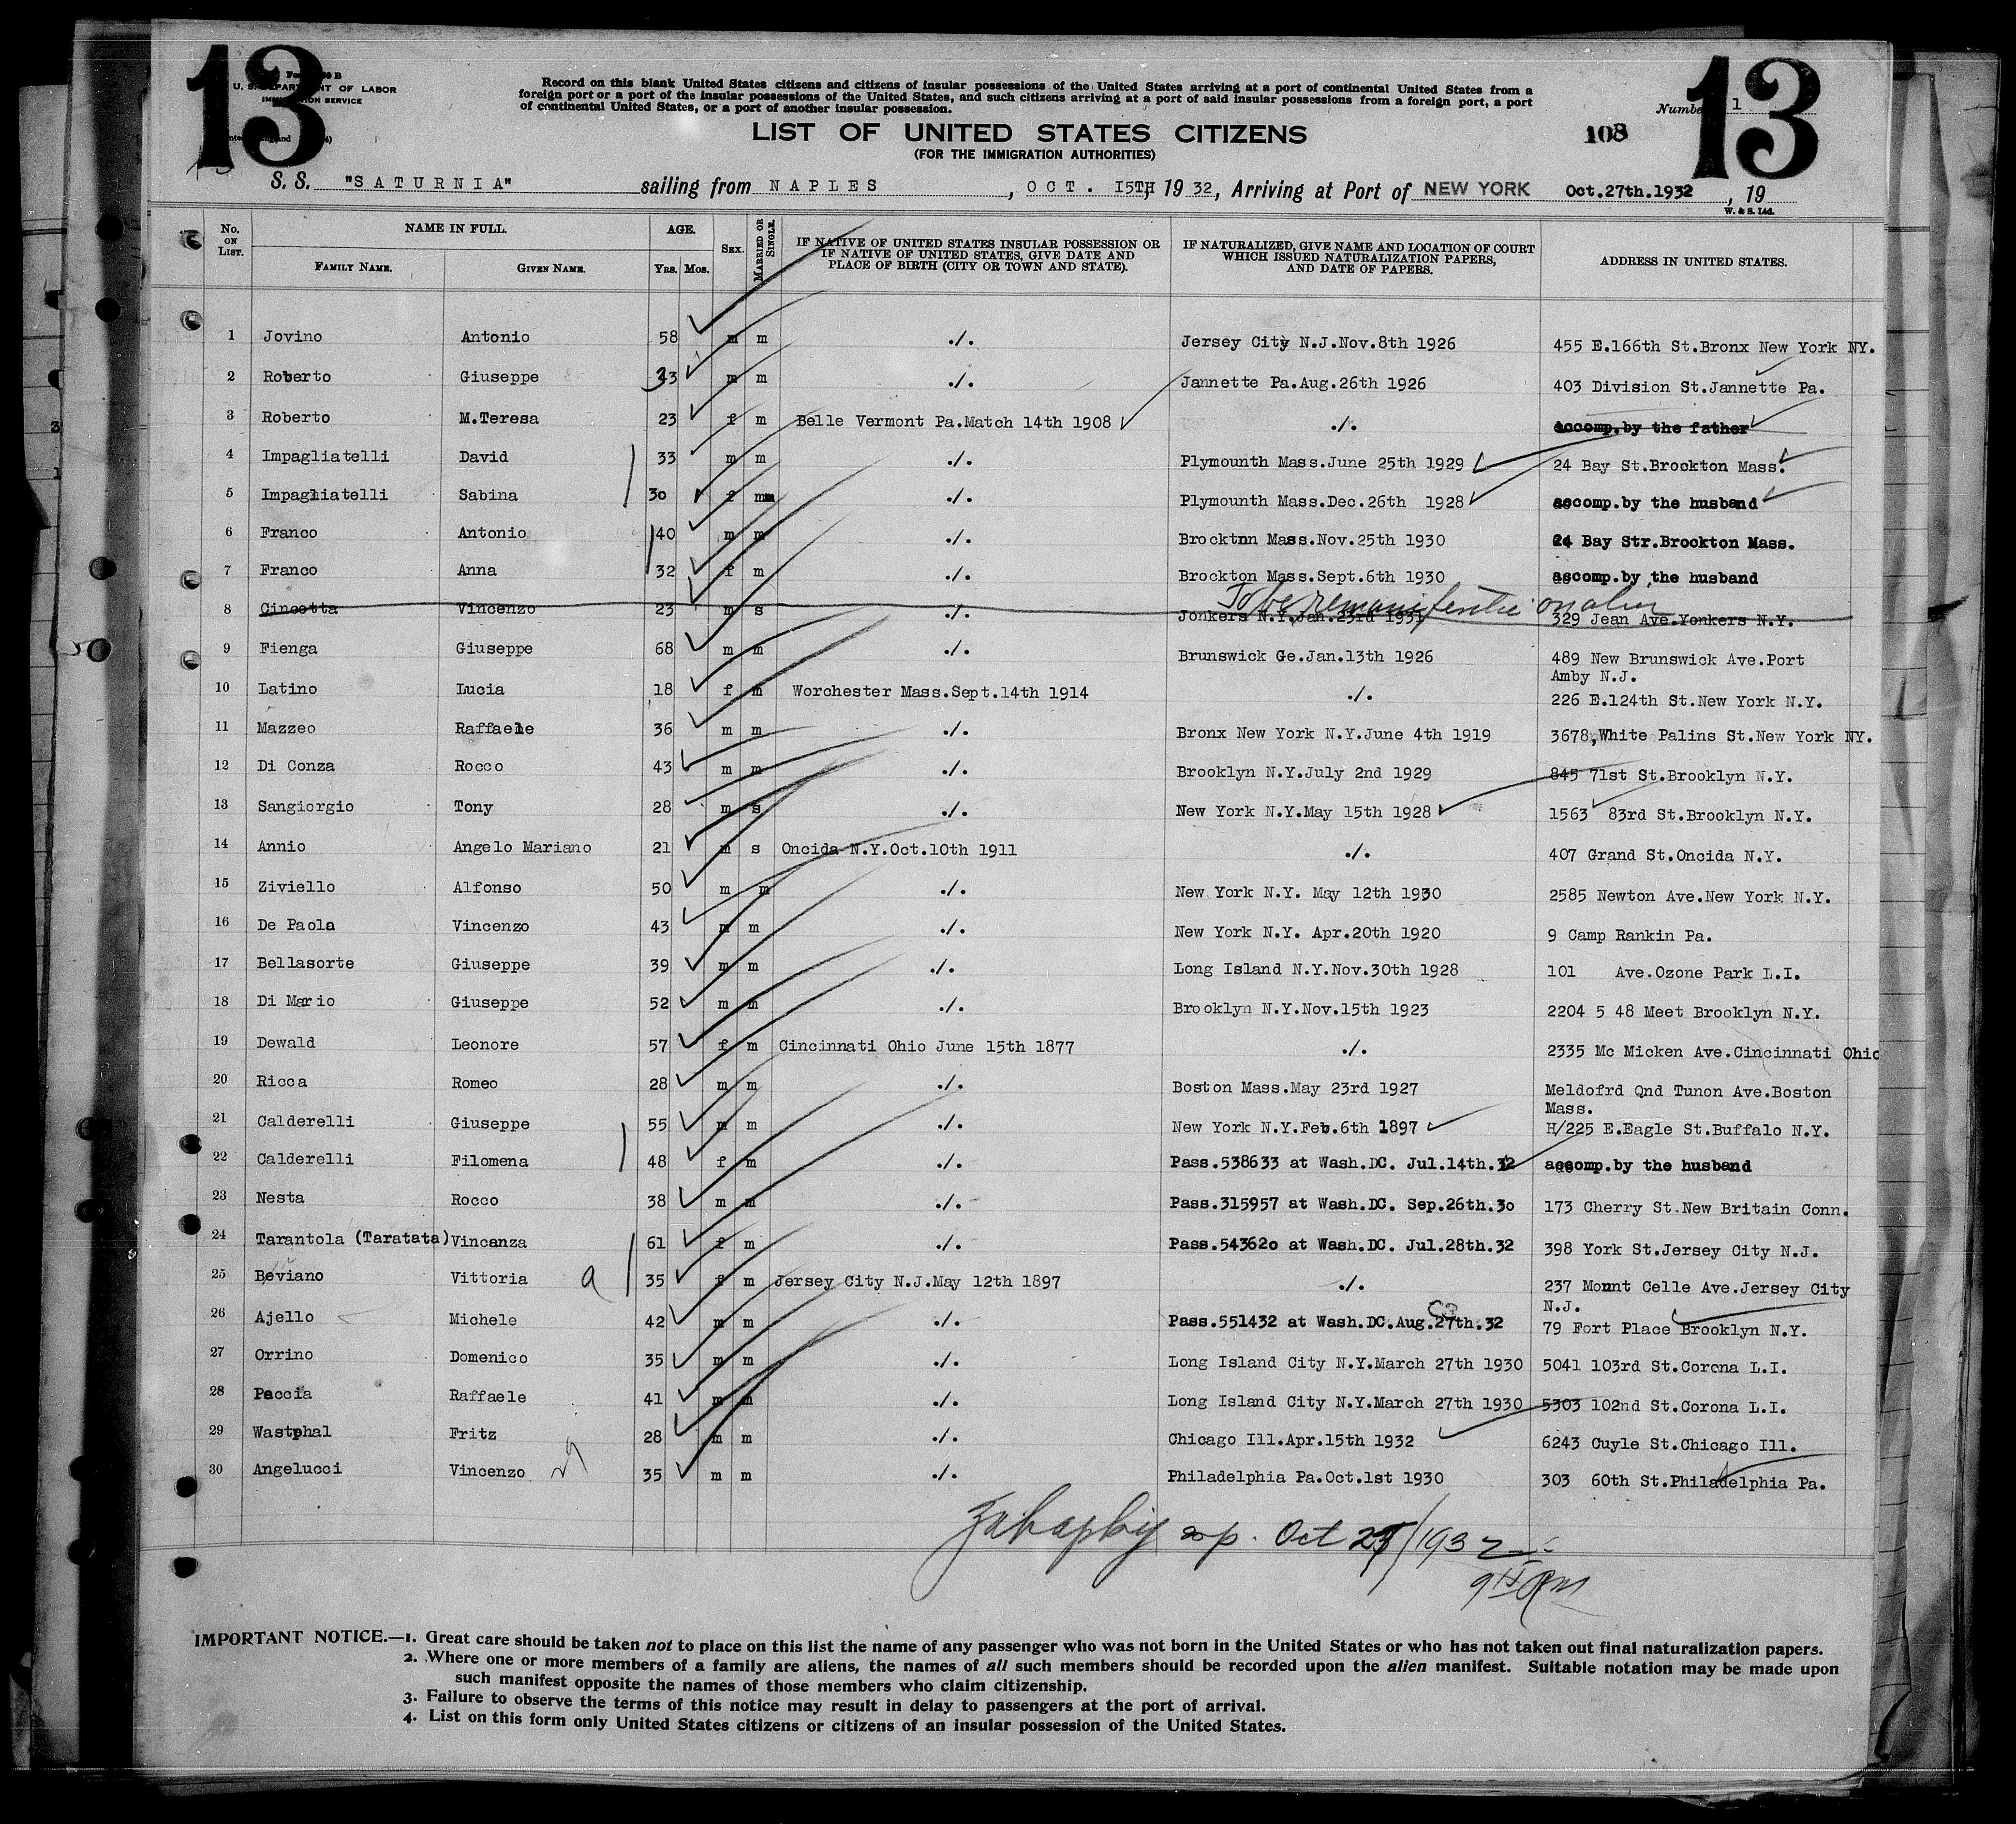 13
13
U. S. DEPARTMENT OF LABOR
IMMIGRATION SERVICE
Record on this blank United States citizens and citizens of insular possessions of the United States arriving at a port of continental United States from a
foreign port or a port of the insular possessions of the United States, and such citizens arriving at a port of said insular possessions from a foreign port, a port
of continental United States, or a port of another insular possession.
Number 1
LIST OF UNITED STATES CITIZENS
108
(FOR THE IMMIGRATION AUTHORITIES)
S. S. "SATURNIA" sailing from NAPLES, OCT. 15TH, 1932, Arriving at Port of NEW YORK Oct.27th.1932, 19
W. & S. Ltd.
No. ON LIST. NAME IN FULL. AGE. SEX. MARRIED OR SINGLE. IF NATIVE OF UNITED STATES INSULAR POSSESSION OR IF NATIVE OF UNITED STATES, GIVE DATE AND PLACE OF BIRTH (CITY OR TOWN AND STATE). IF NATURALIZED, GIVE NAME AND LOCATION OF COURT WHICH ISSUED NATURALIZATION PAPERS, AND DATE OF PAPERS. ADDRESS IN UNITED STATES.
FAMILY NAME. GIVEN NAME. YRS. MOS.
1 Jovino Antonio 58 m m ./. Jersey City N.J.Nov.8th 1926 455 E.166th St.Bronx New York NY.
2 Roberto Giuseppe 33 m m ./. Jannette Pa.Aug.26th 1926 403 Division St.Jannette Pa.
3 Roberto M.Teresa 23 f m Belle Vermont Pa.Match 14th 1908 ./. accomp.by the father
4 Impagliatelli David 33 m m ./. Plymounth Mass.June 25th 1929 24 Bay St.Brockton Mass.
5 Impagliatelli Sabina 30 f m ./. Plymounth Mass.Dec.26th 1928 accomp.by the husband
6 Franco Antonio 40 m m ./. Brocktnn Mass.Nov.25th 1930 24 Bay Str.Brockton Mass.
7 Franco Anna 32 f m ./. Brockton Mass.Sept.6th 1930 accomp.by the husband
To be remanifested on alien
8 Cincotta Vincenzo 23 m s ./. Jonkers N.Y.Jan.23rd 1931 329 Jean Ave.Yonkers N.Y.
9 Fienga Giuseppe 68 m m ./. Brunswick Ge.Jan.13th 1926 489 New Brunswick Ave.Port
Amby N.J.
10 Latino Lucia 18 f m Worchester Mass.Sept.14th 1914 ./. 226 E.124th St.New York N.Y.
11 Mazzeo Raffaele 36 m m ./. Bronx New York N.Y.June 4th 1919 3678,White Palins St.New York NY.
12 Di Conza Rocco 43 m m ./. Brooklyn N.Y.July 2nd 1929 845 71st St.Brooklyn N.Y.
13 Sangiorgio Tony 28 m s ./. New York N.Y.May 15th 1928 1563 83rd St.Brooklyn N.Y.
14 Annio Angelo Mariano 21 m s Oncida N.Y.Oct.10th 1911 ./. 407 Grand St.Oncida N.Y.
15 Ziviello Alfonso 50 m m ./. New York N.Y. May 12th 1930 2585 Newton Ave.New York N.Y.
16 De Paola Vincenzo 43 m m ./. New York N.Y. Apr.20th 1920 9 Camp Rankin Pa.
17 Bellasorte Giuseppe 39 m m ./. Long Island N.Y.Nov.30th 1928 101 Ave.Ozone Park L.I.
18 Di Mario Giuseppe 52 m m ./. Brooklyn N.Y.Nov.15th 1923 2204 5 48 Meet Brooklyn N.Y.
19 Dewald Leonore 57 f m Cincinnati Ohio June 15th 1877 ./. 2335 Mc Micken Ave.Cincinnati Ohio
20 Ricca Romeo 28 m m ./. Boston Mass.May 23rd 1927 Meldofrd Qnd Tunon Ave.Boston
Mass.
21 Calderelli Giuseppe 55 m m ./. New York N.Y.Feb.6th 1897 H/225 E.Eagle St.Buffalo N.Y.
22 Calderelli Filomena 48 f m ./. Pass.538633 at Wash.DC. Jul.14th.32 accomp.by the husband
23 Nesta Rocco 38 m m ./. Pass.315957 at Wash.DC. Sep.26th.30 173 Cherry St.New Britain Conn.
24 Tarantola (Taratata) Vincenza 61 f m ./. Pass.54362o at Wash.DC. Jul.28th.32 398 York St.Jersey City N.J.
25 Beviano Vittoria 35 f m Jersey City N.J.May 12th 1897 ./. 237 Mount Celle Ave.Jersey City
N.J.
26 Ajello Michele 42 m m ./. Pass.551432 at Wash.DC.Aug.27th.32 79 Fort Place Brooklyn N.Y.
27 Orrino Domenico 35 m m ./. Long Island City N.Y.March 27th 1930 5041 103rd St.Corona L.I.
28 Paccia Raffaele 41 m m ./. Long Island City N.Y.March 27th 1930 5303 102nd St.Corona L.I.
29 Wastphal Fritz 28 m m ./. Chicago Ill.Apr.15th 1932 6243 Cuyle St.Chicago Ill.
30 Angelucci Vincenzo 35 m m ./. Philadelphia Pa.Oct.1st 1930 303 60th St.Philadelphia Pa.
Oct 27/1932
9 AM
IMPORTANT NOTICE.—1. Great care should be taken not to place on this list the name of any passenger who was not born in the United States or who has not taken out final naturalization papers.
2. Where one or more members of a family are aliens, the names of all such members should be recorded upon the alien manifest. Suitable notation may be made upon
such manifest opposite the names of those members who claim citizenship.
3. Failure to observe the terms of this notice may result in delay to passengers at the port of arrival.
4. List on this form only United States citizens or citizens of an insular possession of the United States.